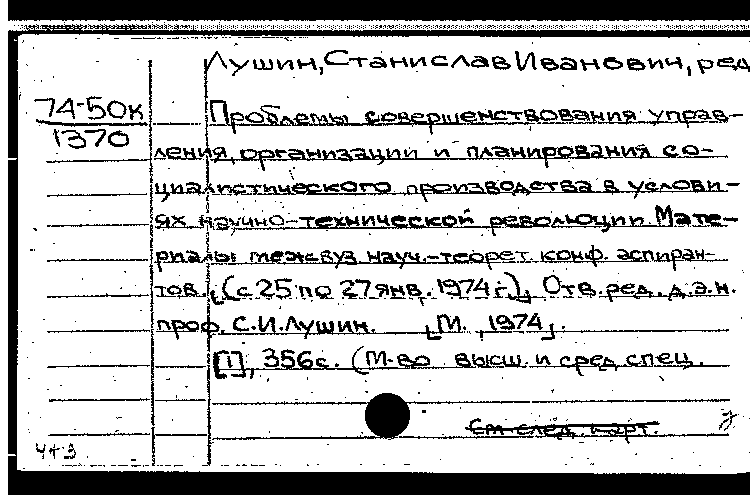 Лушин, Станислав Иванович, ред
74-50к
1370
Проблемы совершенствования управ-
ления, организации и планирования со-
циалистического производства в услови-
ях научно-технической революции. Мате-
риалы межвуз. науч.-теорет. конф. аспиран-
тов. [(с 25 по 27 янв. 1974 г.)], Отв. ред. д.э.н.
проф. С.И. Лушин. [М., 1974].
[1], 356 с. (М-во высш. и сред. спец.
См. след. карт.